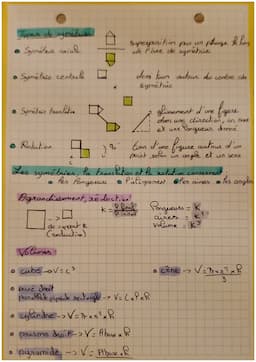 Types de symétrie
• Symétrie axiale superposition par un pliage le long
de l'axe de symétrie
• Symétrie centrale demi tour autour du centre de
symétrie
• Symétrie translation glissement d'une figure
dans une direction, un sens
et une longueur donné
• Rotation d'une figure autour d'un
point selon un angle et un sens
Les symétries, la translation et la rotation conservent
• les longueurs • l'alignement • les aires • les angles
Agrandissement, réduction
K = Longueurs = K
aires = K²
volume = K³
(réduction)
Volumes
• cube → V = c³
• cône → V =
• pavé droit
parallélépipède rectangle → V = L × l × h
• cylindre → V = π × r² × h
• prisme droit → V = Abase × h
• pyramide → V = Abase × h